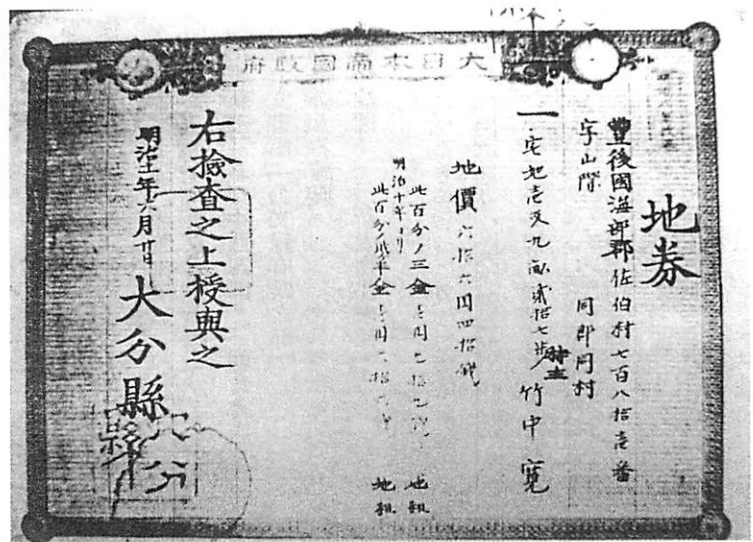 大日本帝國政府
地券
豐後國海部郡佐伯村七百八拾壱番
字山際 同郡同村
一宅地壱反九畝貳拾七歩 持主 竹中寛
地價 六拾六円四拾銭
此百分ノ三金 地租
明治十年ヨリ
此百分ノ貳ヶ半金 地租
右檢査之上授與之
明治十一年六月廿日
大分縣